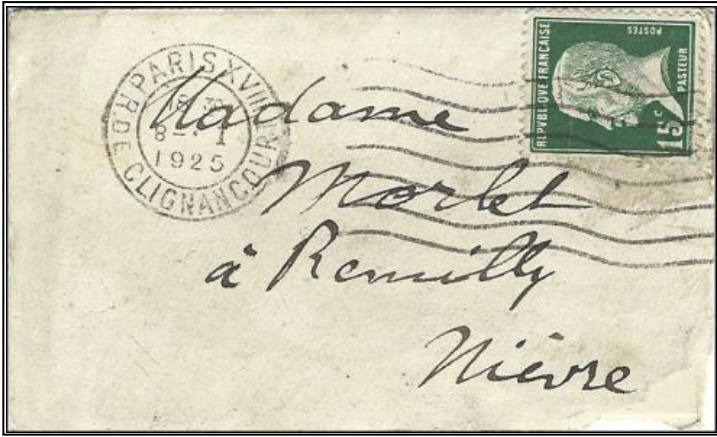 PARIS XVIII
R. DE CLIGNANCOURT
8 - I
1925
REPUBLIQUE FRANÇAISE
POSTES
PASTEUR
15c
Madame
Morlet
à Remilly
Nièvre